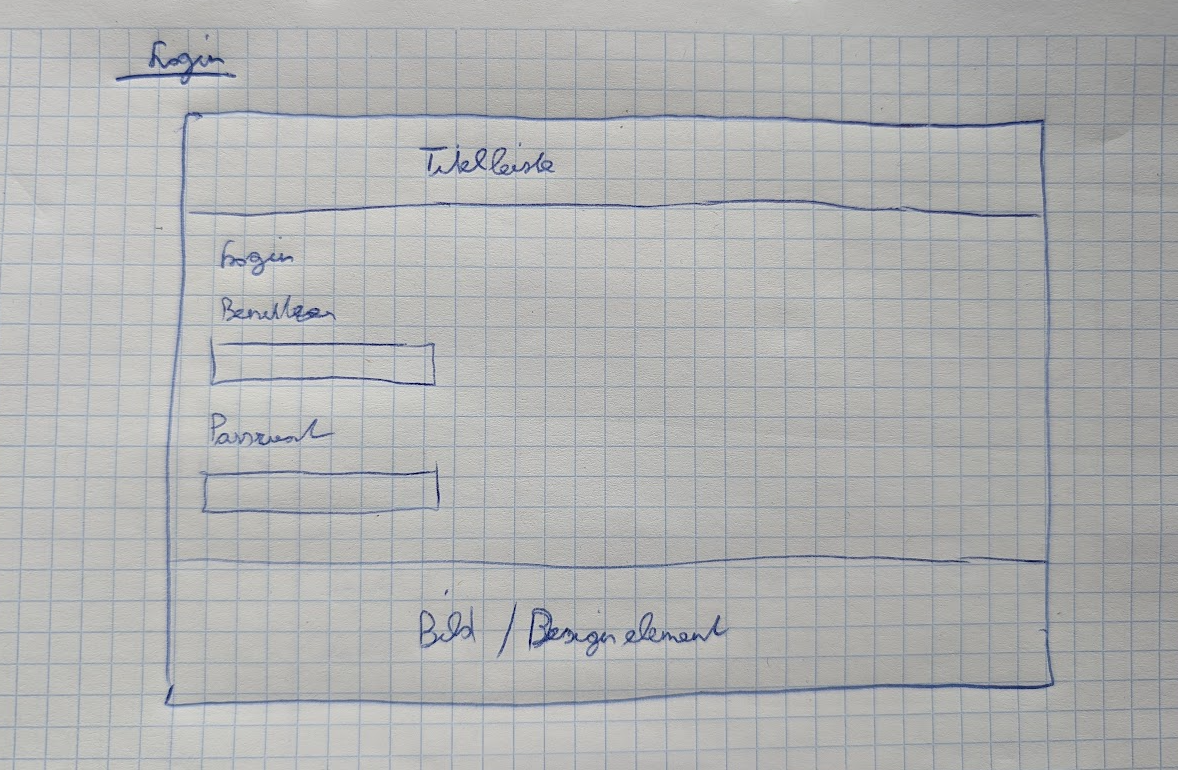 Login
Titelleiste
Login
Benutzer
Passwort
Bild / Designelement